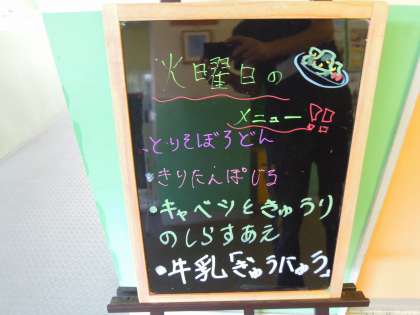 火曜日の
メニュー!!
・とりそぼろどん
・きりたんぽじる
・キャベツときゅうり
のしらすあえ
・牛乳「ぎゅうにゅう」